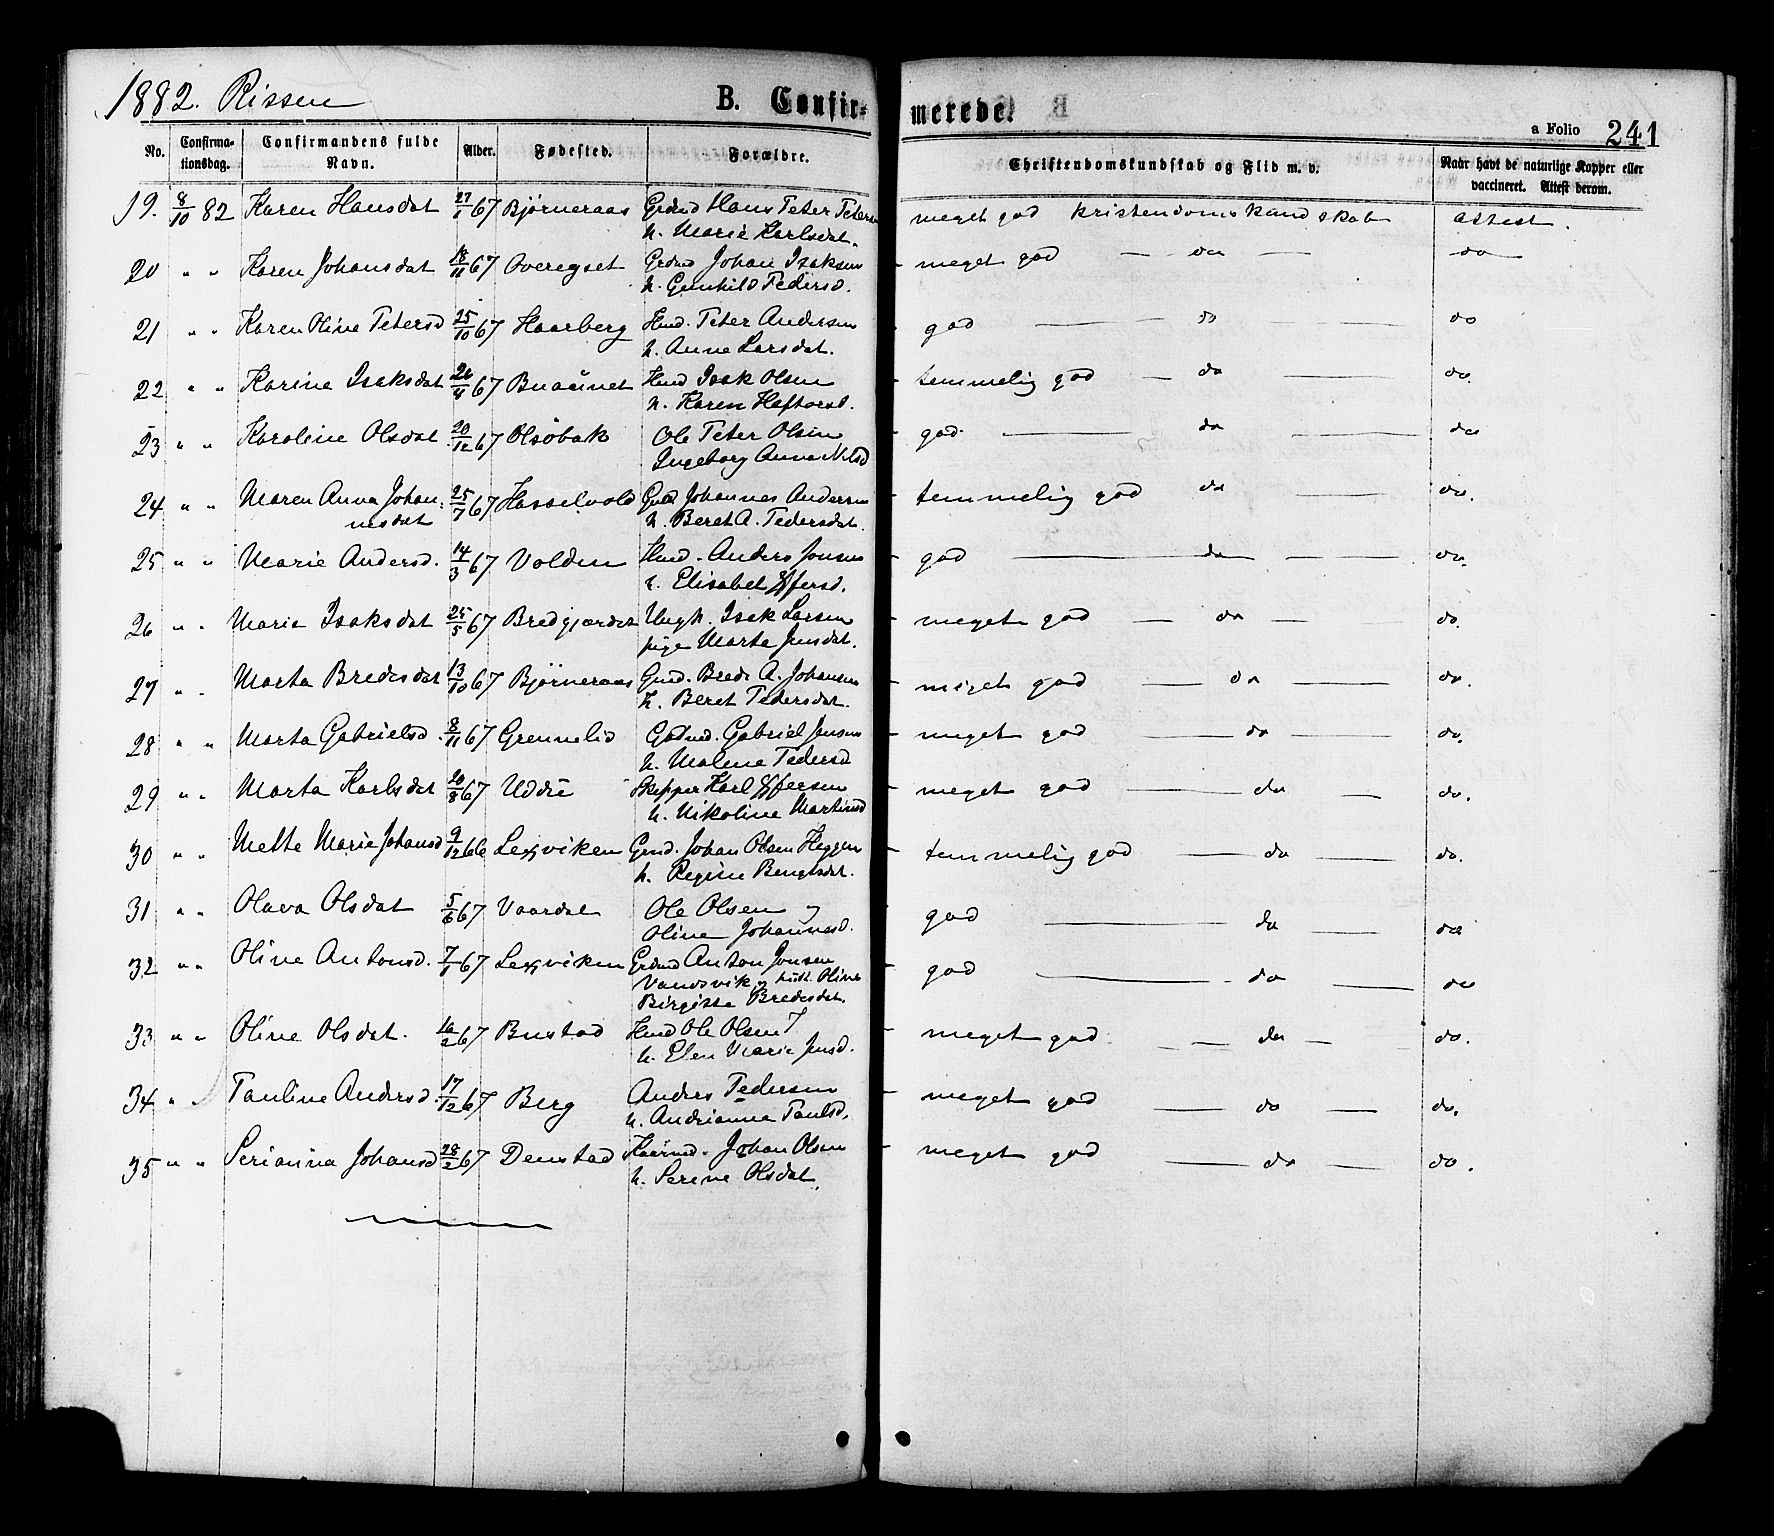 1882. Rissen B. Confirmerede. a Folio 241
No. Confirmationsdag. Confirmandens fulde Navn. Alder. Fødested. Forældre. Christendomskundskab og Flid m. v. Naar havt de naturlige Kopper eller vaccineret. Attest derom.
19. 8/10 82 Karen Hansdat 27/1 67 Bjørneraas Grdmd Hans Peter Peters meget god kristendomskundskab attest.
h. Marie Karlsdat.
20 " " Karen Johansdat 18/11 67 Overegset Grdmd Johan Isaksen meget god — do — do
h. Gunhild Pedersd.
21 " " Karen Oline Petersd 25/10 67 Haarberg Hmd. Peter Andersen god — do — do
h. Anne Larsdat.
22 " " Karine Isaksdat 26/4 67 Buaunet Hmd Isak Olsen temmelig god — do — do.
h. Karen Haftorsd.
23 " " Karoline Olsdat 20/12 67 Olsøbak Ole Peter Olsen god — do — do
Ingeborg Anna Nilsd
24 " " Maren Anna Johan- 25/7 67 Hasselvold Gmd Johannes Andersen temmelig god do — do.
nesdat h. Beret A. Pedersdat.
25 " " Marie Andersd. 14/3 67 Volden Hmd. Anders Jonsen god — do — do.
h. Elisabet
26 " " Maria Isaksdat 25/5 67 Bredgjærdet Ungk. Isak Larsen meget god — do — do.
pige Marta Jensdat.
27 " " Marta Bredesdat 13/10 67 Bjørneraas Gmd. Brede A. Johansen meget god — do — do.
h. Beret Pedersdat.
28 " " Marta Gabrielsd. 8/11 67 Grønnelid Gdmd. Gabriel Jensen meget god — do do.
h. Malene Pedersd
29 " " Marta Karlsdat 20/8 67 Uddu Skipper Karl meget god — do — do.
h. Nikoline Martinsd
30 " " Mette Marie Johansd 9/12 66 Lexviken Gmd. Johan Olsen Heggen temmelig god — do — do.
h. Regine Bengtsdat.
31 " " Olava Olsdat 5/6 67 Vaardal Ole Olsen og god — do — do
Oline Johannesd.
32 " " Oline Antonsd. 7/1 67 Lexviken Grdmd Anton Jonsen god — do — do
Vandsvik og hust. Oline
Birgitta Bredesdat.
33 " " Oline Olsdat. 16/2 67 Bustad Hmd Ole Olsen meget god — do — do.
h. Elen Marie Jensd.
34 " " Pauline Andersd. 17/12 67 Berg Anders Pedersen meget god — do — do.
h. Andrianna Paulsd.
35 " " Serianna Johansd 28/2 67 Denstad Johan Olsen meget god — do — do.
h. Serine Olsdat.